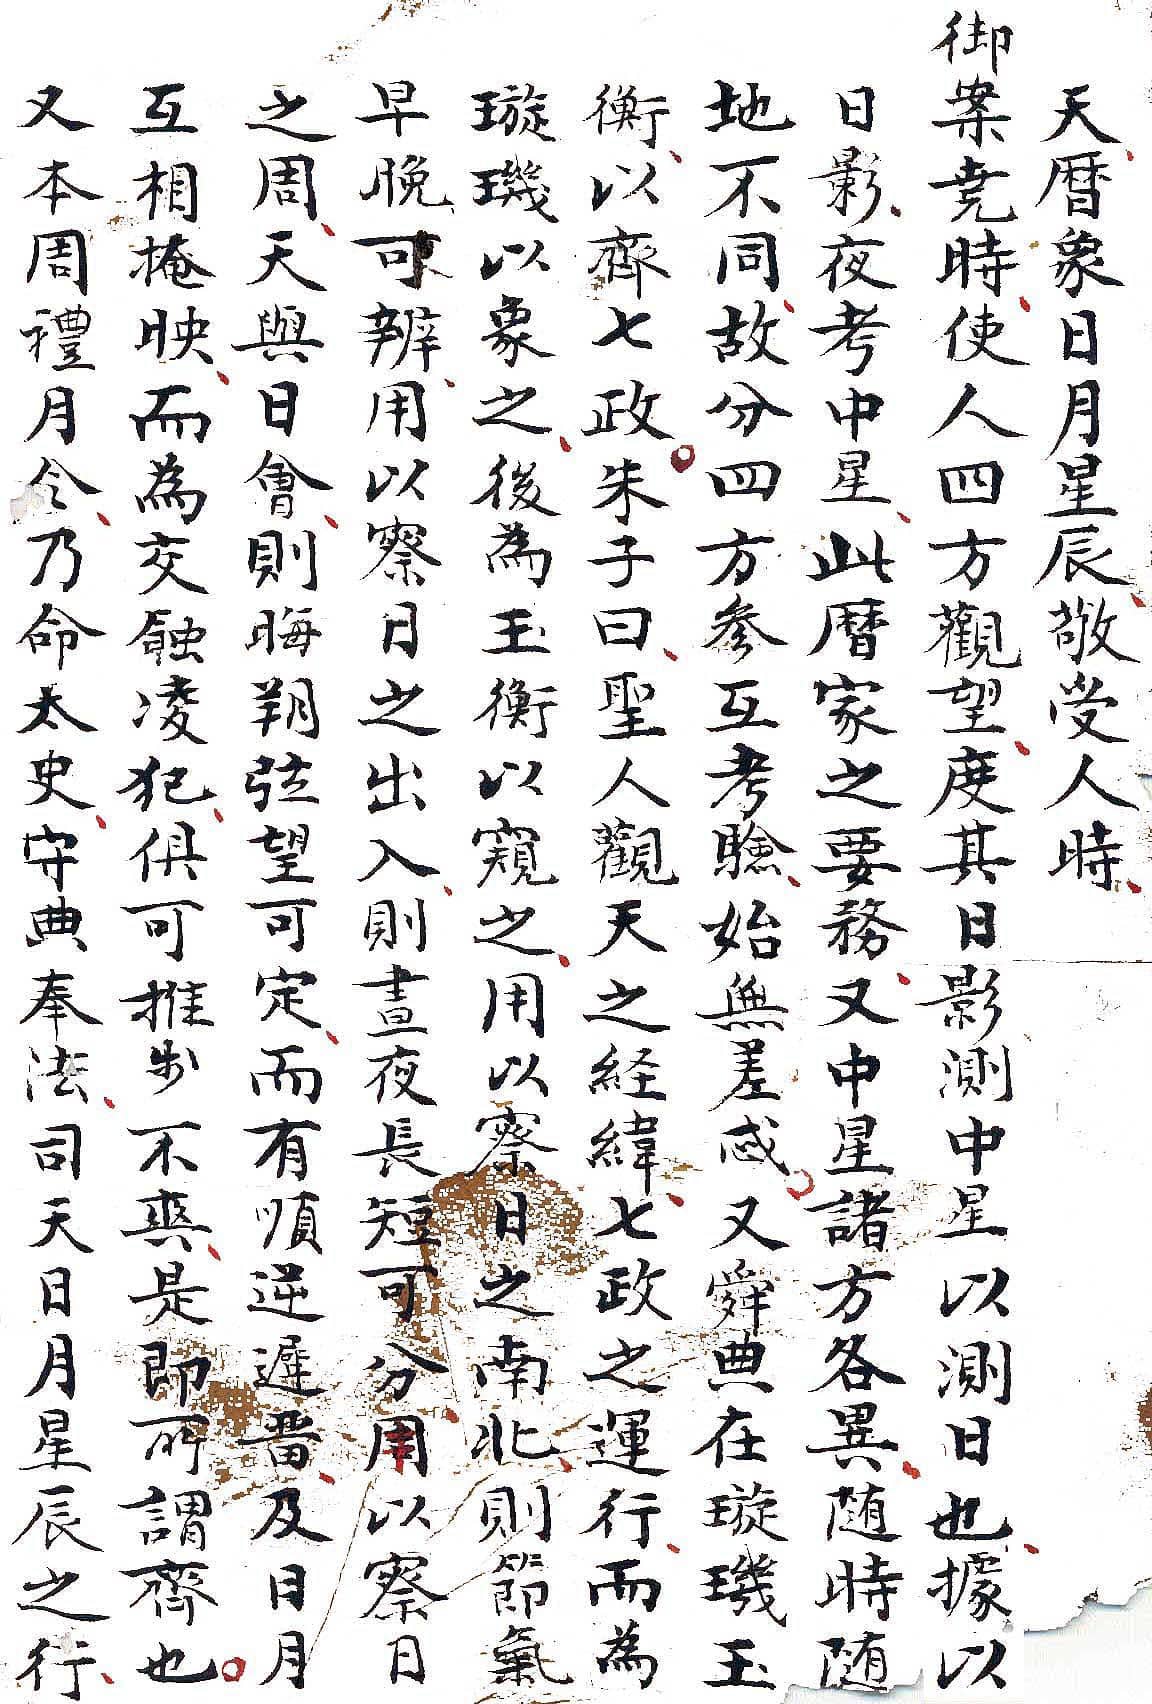 天暦象日月星辰敬受人時
御案尭時使人四方觀望度其日影測中星以測日也據以
日影夜考中星此暦家之要務又中星諸方各異随時随
地不同故分四方参互考驗始無差惑又舜典在璇璣玉
衡以齊七政朱子曰聖人觀天之経緯七政之運行而為
璇璣以象之後為玉衡以窺之用以察日之南北則節氣
早晩可辨用以察日之出入則晝夜長短可分用以察日
之周天與日會則晦朔弦望可定而有順逆遲畱及日月
互相掩映而為交蝕凌犯俱可推步不爽是即所謂齊也
又本周禮月令乃命太史守典奉法司天日月星辰之行